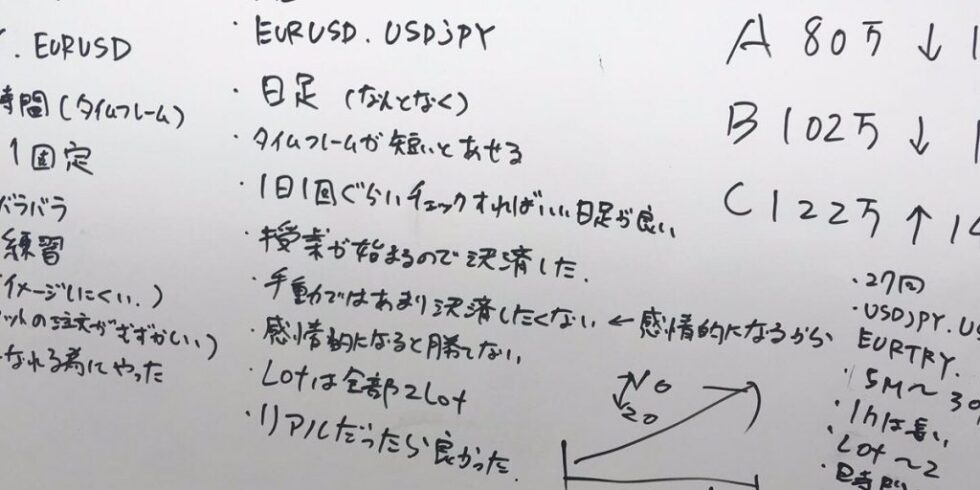 EURUSD
時間(タイムフレーム)
1固定
バラバラ
練習
イメージしにくい。)
ットの注文がむずかしい)
なれる為にやった
EURUSD. USDjPY
・日足(なんとなく)
・タイムフレームが短いとあせる
・1日1回ぐらいチェックすればいい日足が良い
・授業が始まるので決済した.
・手動ではあまり決済したくない ← 感情的になるから
・感情的になると勝てない
・Lotは全部2Lot
・リアルだったら良かった.
No
20
A 80万 ↓ 1
B 102万 ↓ 1
C 122万 ↑ 14
・27回
・USDjPY. US
EURTRY.
・5M〜30
・1hは長い
・Lot〜2